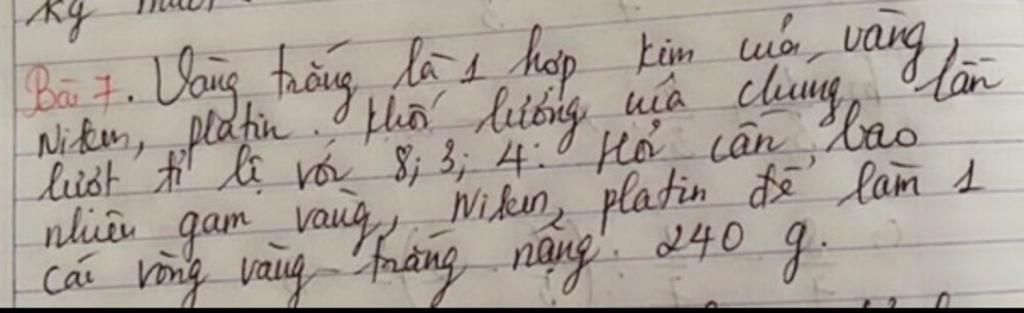 Kg
Bài 7. Vàng trắng là 1 hợp kim của vàng,
Niken, platin. Khối lượng của chúng lần
lượt tỉ lệ với 8; 3; 4. Hỏi cần bao
nhiêu gam vàng, Niken, platin để làm 1
cái vòng vàng trắng nặng 240 g.